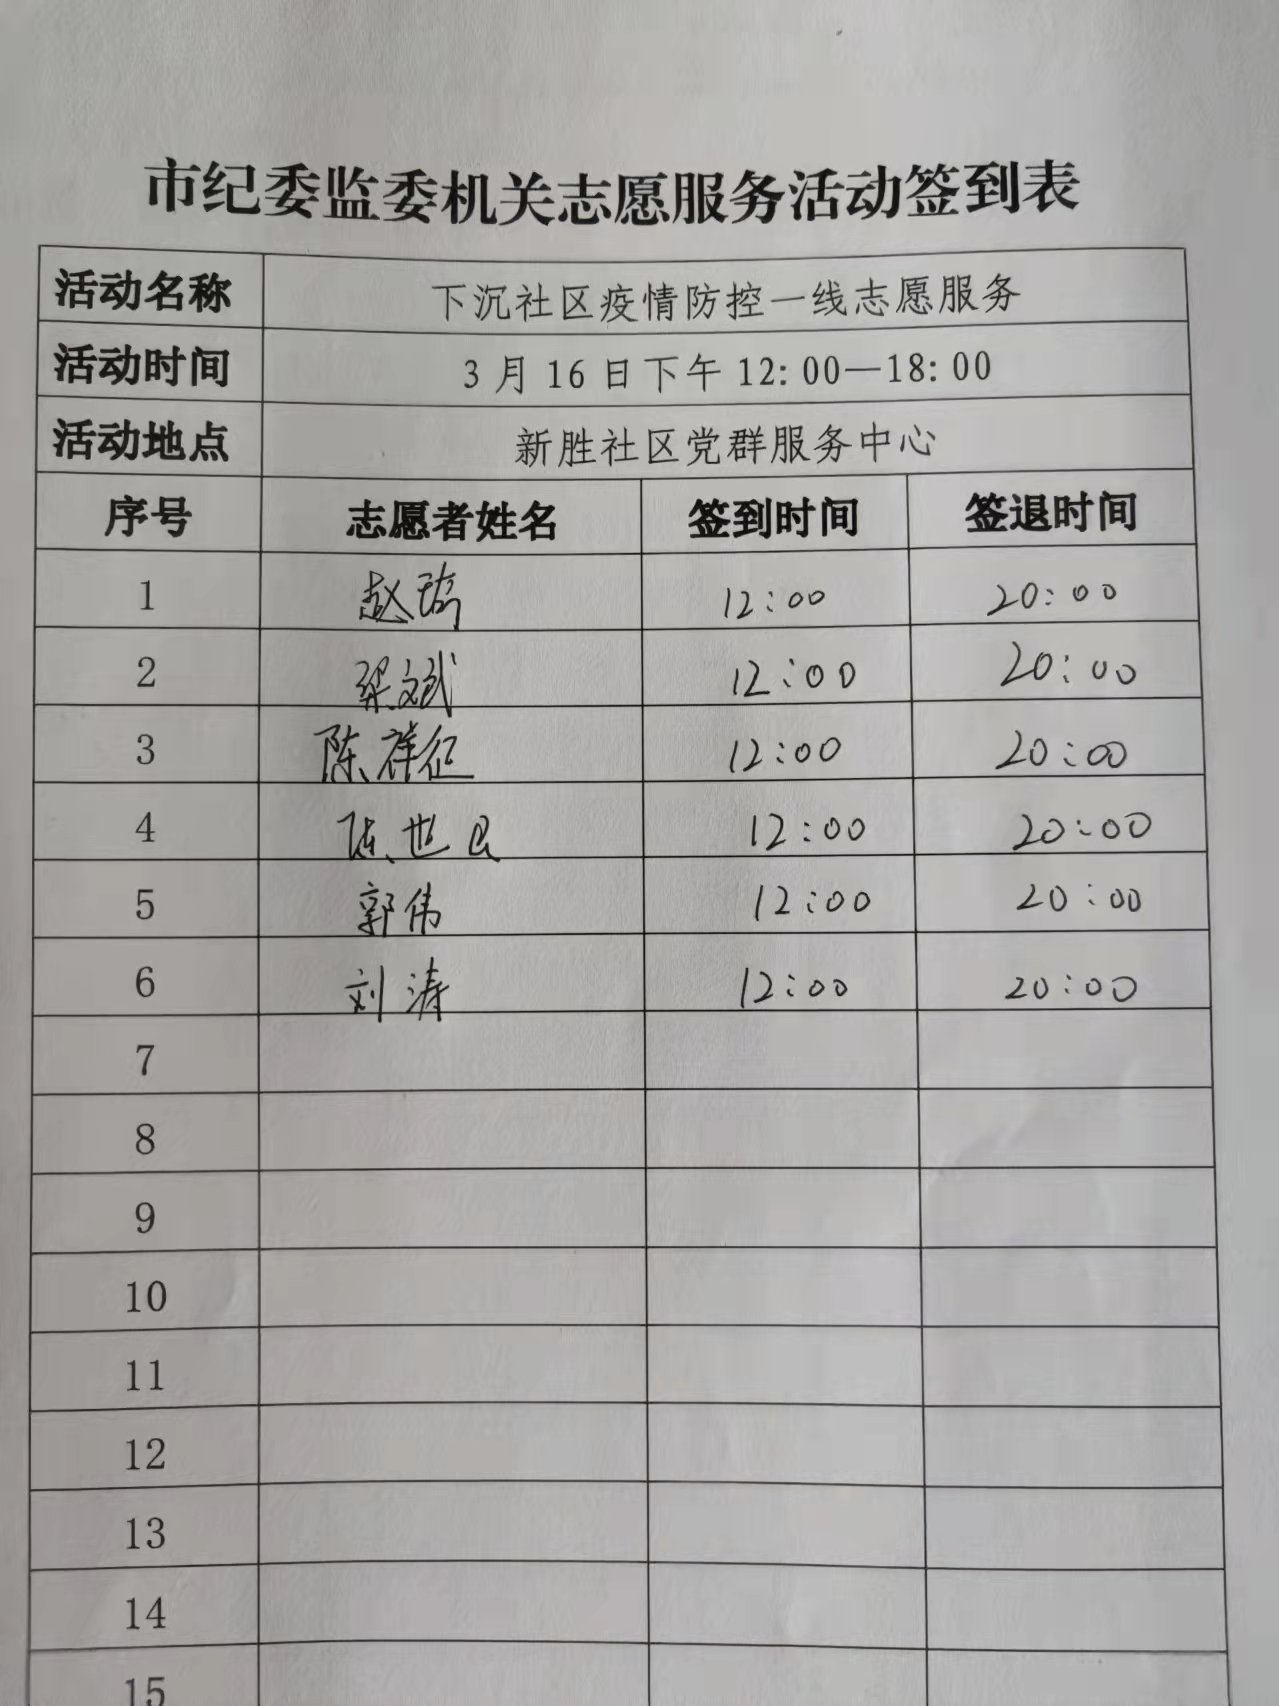 市纪委监委机关志愿服务活动签到表
活动名称 下沉社区疫情防控一线志愿服务
活动时间 3月16日下午12:00—18:00
活动地点 新胜社区党群服务中心
序号 志愿者姓名 签到时间 签退时间
1 赵 12:00 20:00
2 梁斌 12:00 20:00
3 陈祥征 12:00 20:00
4 陈世 12:00 20:00
5 郭伟 12:00 20:00
6 刘涛 12:00 20:00
7
8
9
10
11
12
13
14
15